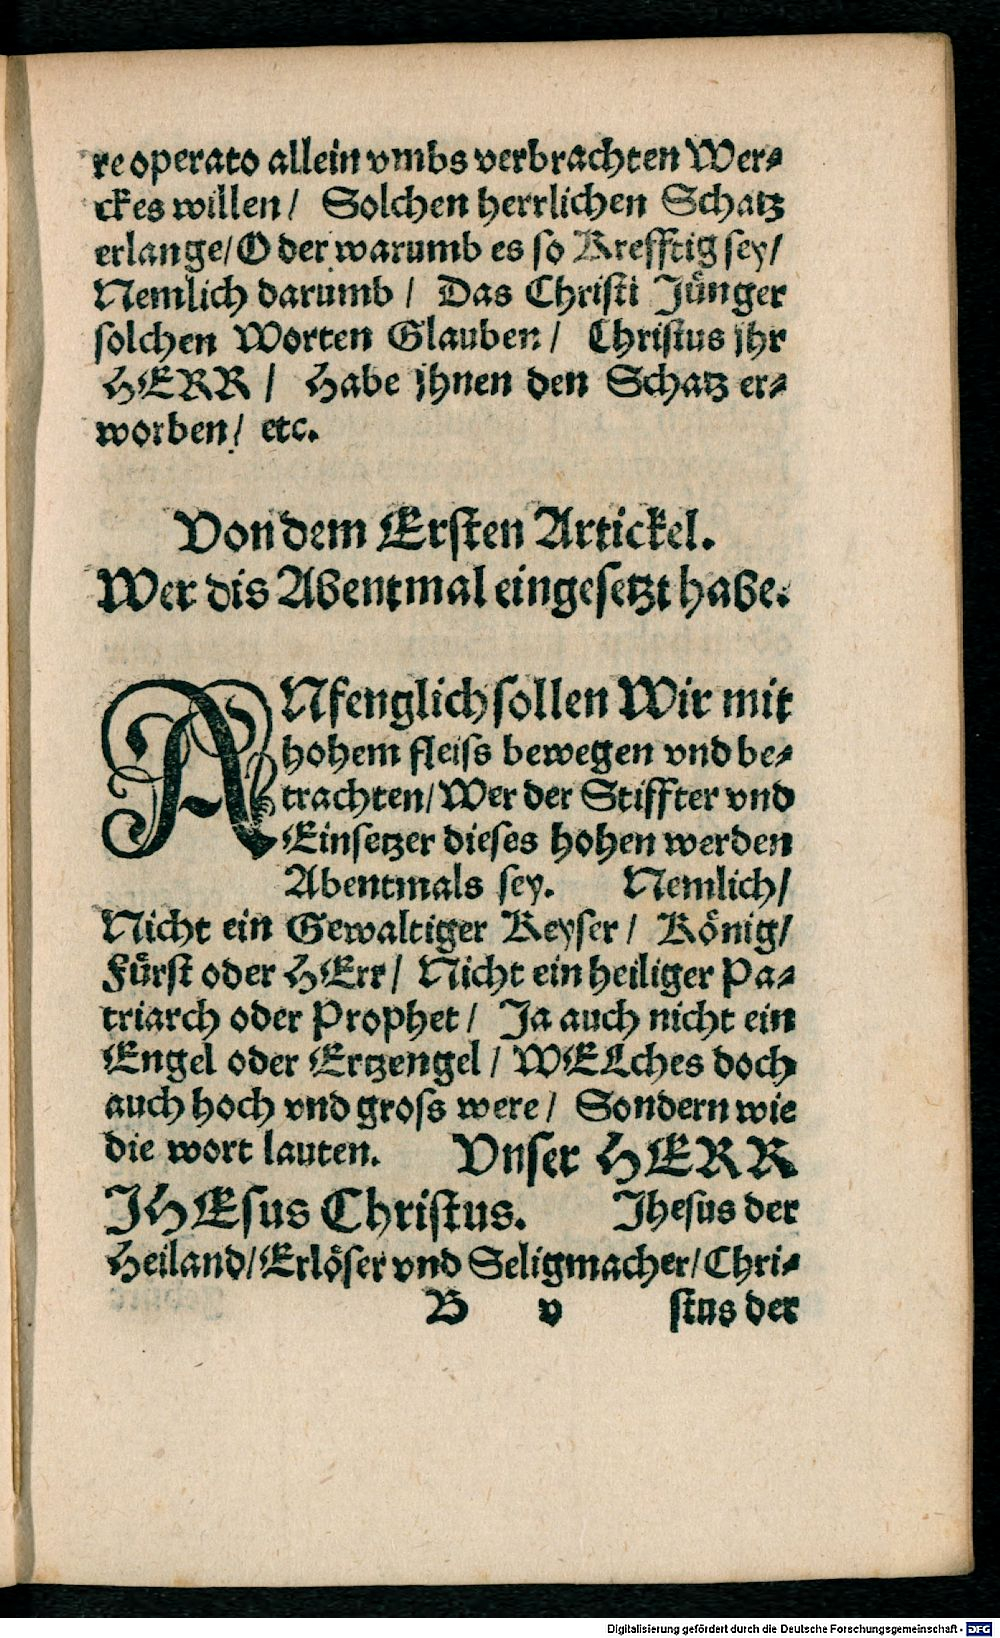 re operato allein vmbs verbrachten Wer-
ckes willen / Solchen herrlichen Schatz
erlange / Oder warumb es so Krefftig sey /
Nemlich darumb / Das Christi Jünger
solchen Worten Glauben / Christus jhr
HERR / Habe jhnen den Schatz er-
worben / etc.
Von dem Ersten Artickel.
Wer dis Abentmal eingesetzt habe.
ANfenglich sollen Wir mit
hohem fleiss bewegen vnd be-
trachten / Wer der Stiffter vnd
Einsetzer dieses hohen werden
Abentmals sey. Nemlich /
Nicht ein Gewaltiger Keyser / König /
Fürst oder HErr / Nicht ein heiliger Pa-
triarch oder Prophet / Ja auch nicht ein
Engel oder Ertzengel / WELches doch
auch hoch vnd gross were / Sondern wie
die wort lauten. Vnser HERR
JHEsus Christus. Jhesus der
Heiland / Erlöser vnd Seligmacher / Chri-
B v stus der
Digitalisierung gefördert durch die Deutsche Forschungsgemeinschaft - DFG